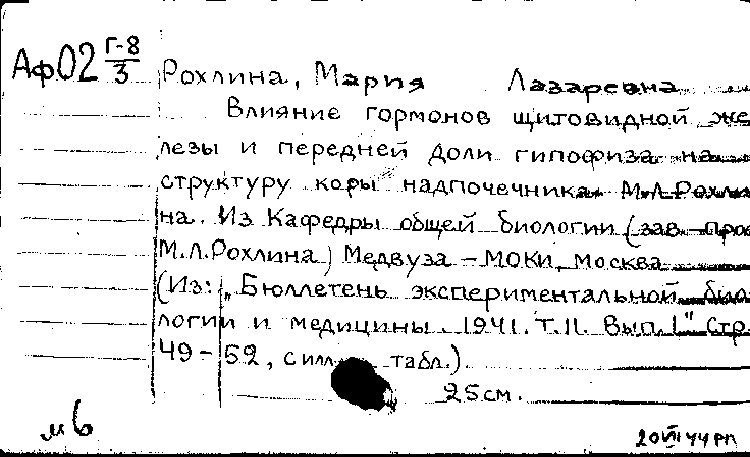 Аф02 Г-8/3
Рохлина, Мария Лазаревна
Влияние гормонов щитовидной же
лезы и передней доли гипофиза на
структуру коры надпочечника. М.Л.Рохли
на. Из Кафедры общей биологии (зав. проф
М.Л.Рохлина) Медвуза – МОКИ, Москва
(Из: „Бюллетень экспериментальной био
логии и медицины. 1941. Т.11. Вып.1" Стр.
49–52, с илл табл.)
25см.
м6
20VII44